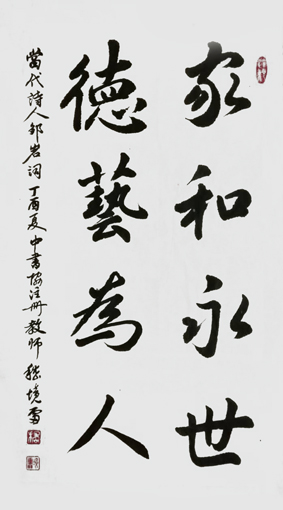 家和永世
德藝為人
當代詩人邹岩词丁酉夏中書协注册教师嵇境雪